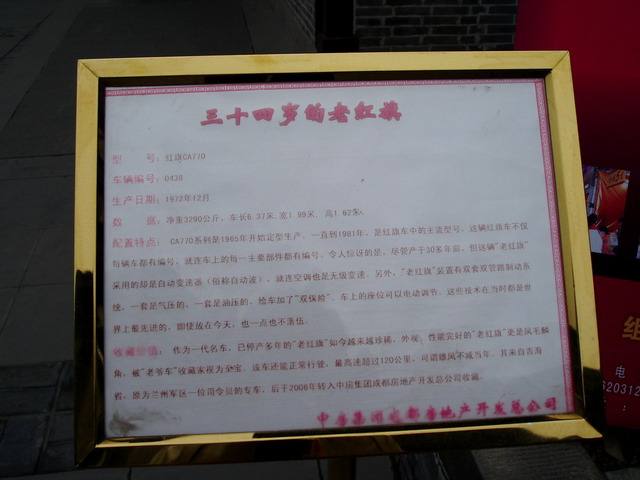 三十四岁的老红旗
型 号：红旗CA770
车辆编号：0438
生产日期：1972年12月
数 据：净重3290公斤，车长6.37米,宽1.99米，高1.62米
配置特点：CA770系列是1965年开始定型生产，一直到1981年，是红旗车中的主流型号。这辆红旗车不仅
每辆车都有编号，就连车上的每一主要部件都有编号。令人惊讶的是，尽管产于30多年前，但这辆"老红旗"
采用的却是自动变速器（俗称自动波），就连空调也是无级变速。另外，"老红旗"装置有双套双管路制动系
统，一套是气压的，一套是油压的，给车加了"双保险"。车上的座位可以电动调节。这些技术在当时都是世
界上最先进的，即使放在今天，也一点也不落伍。
收藏价值：作为一代名车，已停产多年的"老红旗"如今越来越珍稀，外观、性能完好的"老红旗"更是凤毛麟
角，被"老爷车"收藏家视为至宝。该车还能正常行驶，最高速超过120公里，可谓雄风不减当年。其来自青海
省，原为兰州军区一位司令员的专车，后于2006年转入中房集团成都房地产开发总公司收藏。
中房集团成都房地产开发总公司
电
620312